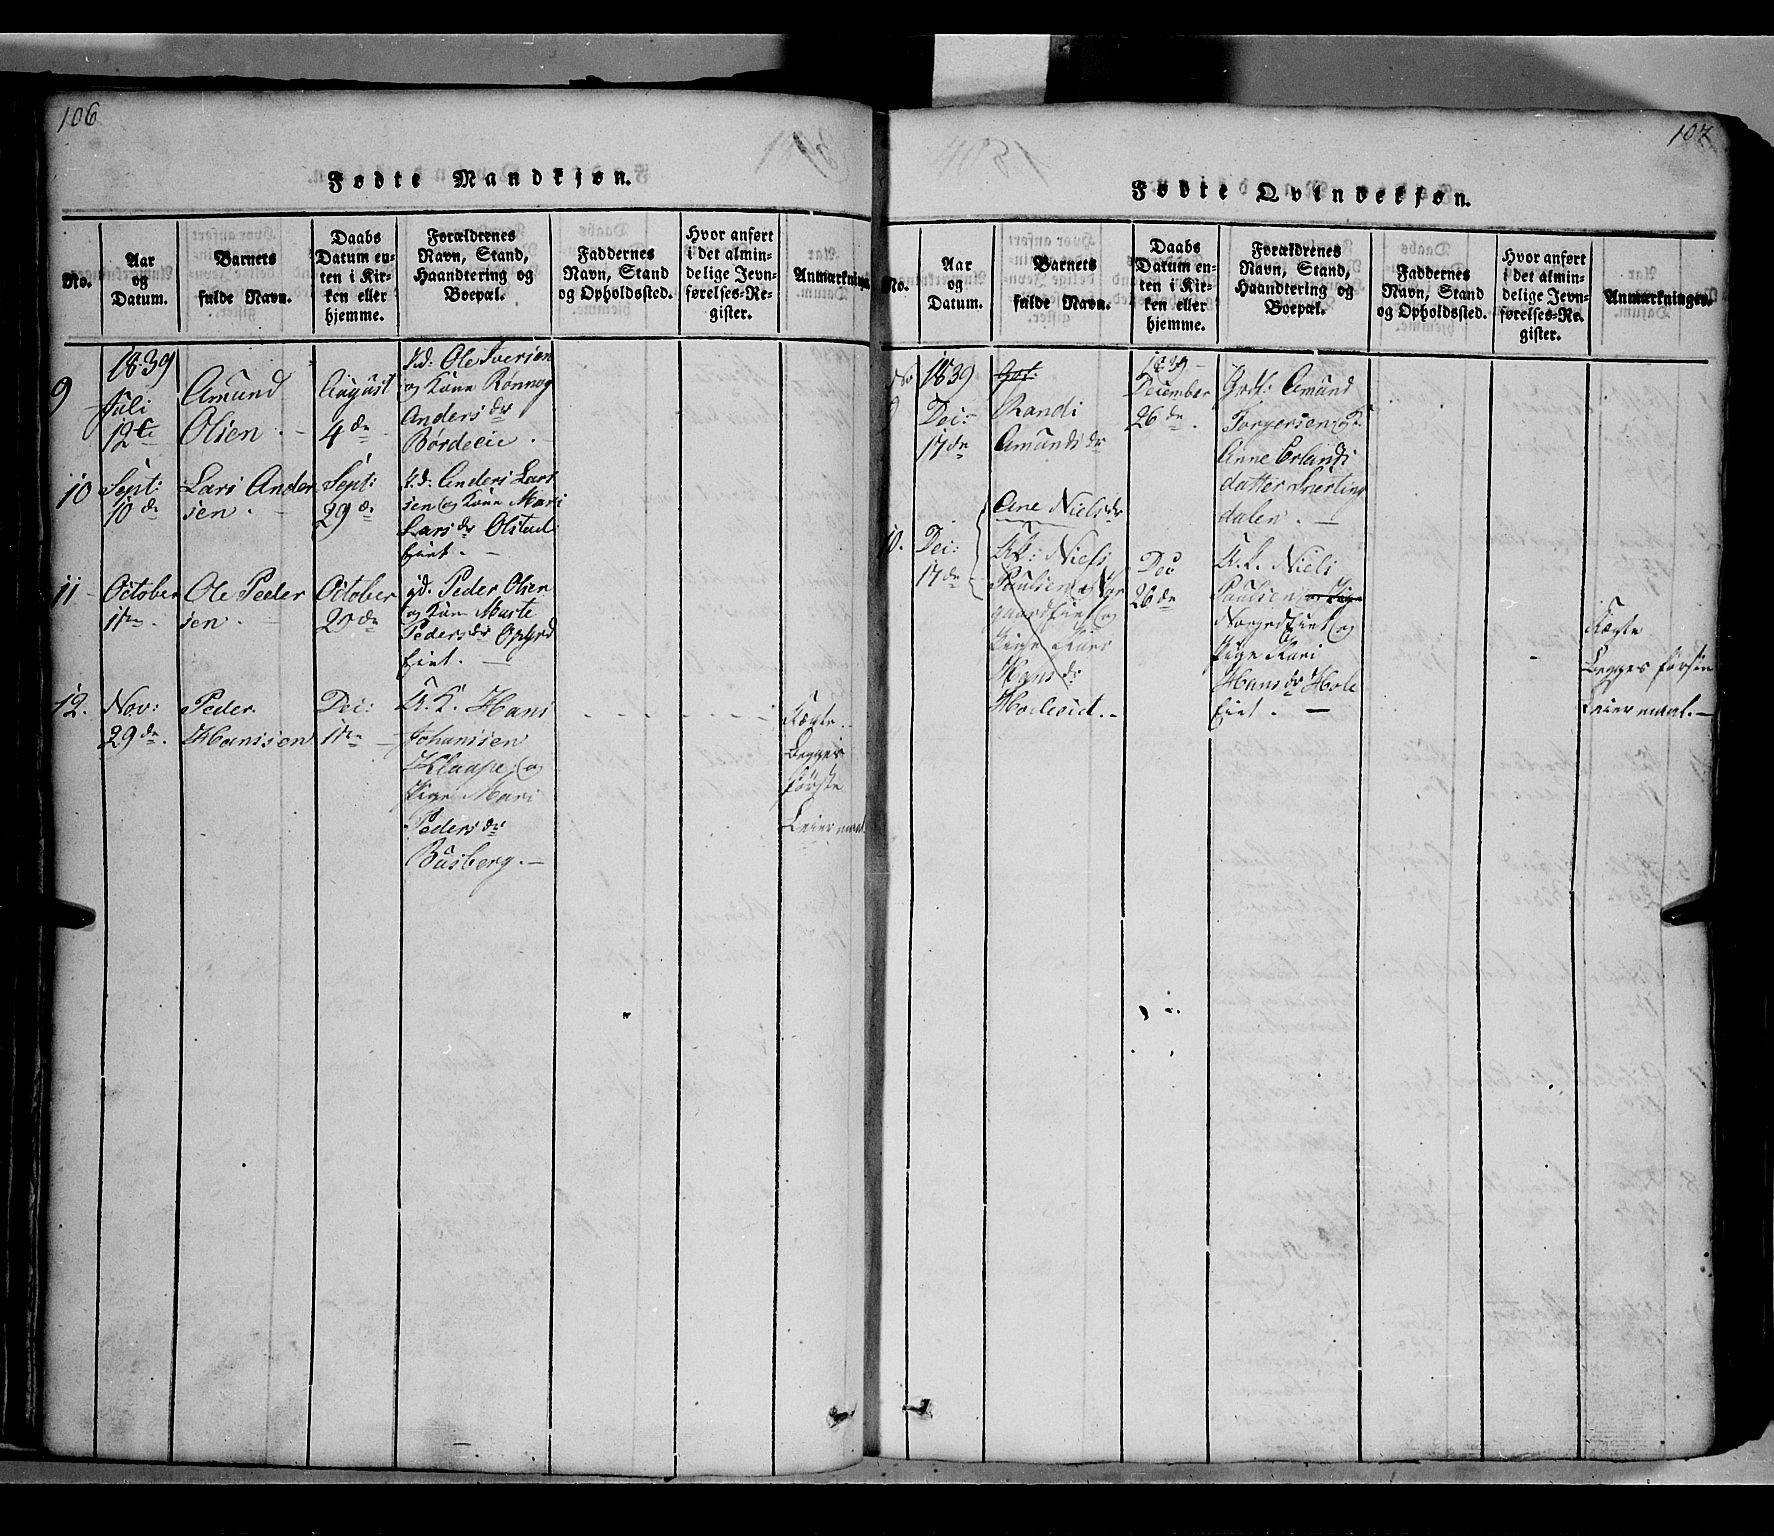 106
Fødte Mandkjøn.
No.
Aar
og
Datum.
Barnets
fulde Navn.
Daabs
Datum en-
ten i Kir-
ken eller
hjemme.
Forældrenes
Navn, Stand,
Haandtering og
Boepæl.
Faddernes
Navn, Stand
og Opholdssted.
Hvor anført
i det almin-
delige Jevn-
førelses-Re-
gister.
Anmærkninge
9
1839
Juli
12te
Amund
Olsen.
August
4de
Ole Iversen
og Kone Rønnog
Anders dr
10
Sept:
10de
Lars Ander
sen.
Sept:
29de
Anders Lars
sen og Kone Mari
Lars dr Olstad
Eiet.
11
October
11te
Ole Peder
sen.
October
20de
Peder Olsen
og Kone Marte
Peders dr
Eiet.
12.
Nov:
29de.
Peder
Hanssen
Dec:
Hans
Johanssen
Klaape og
Pige Mari
Peders dr
Busberg.
Uægte
Begges
første
Leiermaal
107
Fødte Qvindekjøn.
No.
Aar
og
Datum.
Barnets
fulde Navn.
Daabs
Datum en-
ten i Kir-
ken eller
hjemme.
Forældrenes
Navn, Stand,
Haandtering og
Boepæl.
Faddernes
Navn, Stand
og Opholdssted.
Hvor anført
i det almin-
delige Jevn-
førelses-Re-
gister.
Anmærkninger.
No
9
1839
Dec:
17de
Randi
Amunds dr
1839
December
26de.
Amund
Torgersen
Anne Erlands
datter Snerting
dalen.
10.
Dec:
17de
Ane Niels dr
Niels
Paulsen
Pige Kari
Hans dr
Dec
26de
Niels
Paulsen
og
Pige Kari
Hans dr Hole
Eiet.
Uægte
Begges første
Leiermaal.